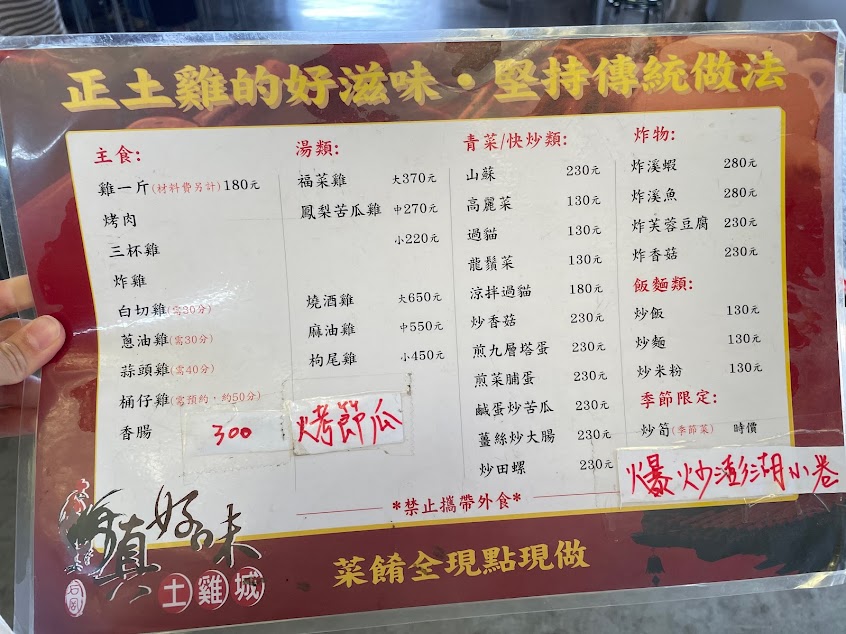 正土雞的好滋味・堅持傳統做法
主食:
雞一斤(材料費另計)180元
烤肉
三杯雞
炸雞
白切雞(需30分)
蔥油雞(需30分)
蒜頭雞(需40分)
桶仔雞(需預約,約50分)
香腸 300
湯類:
福菜雞 大370元
鳳梨苦瓜雞 中270元
小220元
燒酒雞 大650元
麻油雞 中550元
枸尾雞 小450元
烤節瓜
青菜/快炒類:
山蘇 230元
高麗菜 130元
過貓 130元
龍鬚菜 130元
涼拌過貓 180元
炒香菇 230元
煎九層塔蛋 230元
煎菜脯蛋 230元
鹹蛋炒苦瓜 230元
薑絲炒大腸 230元
炒田螺 230元
炸物:
炸溪蝦 280元
炸溪魚 280元
炸芙蓉豆腐 230元
炸香菇 230元
飯麵類:
炒飯 130元
炒麵 130元
炒米粉 130元
季節限定:
炒筍(季節菜) 時價
爆炒澎湖小卷
*禁止攜帶外食*
真好味
土雞城
菜餚全現點現做